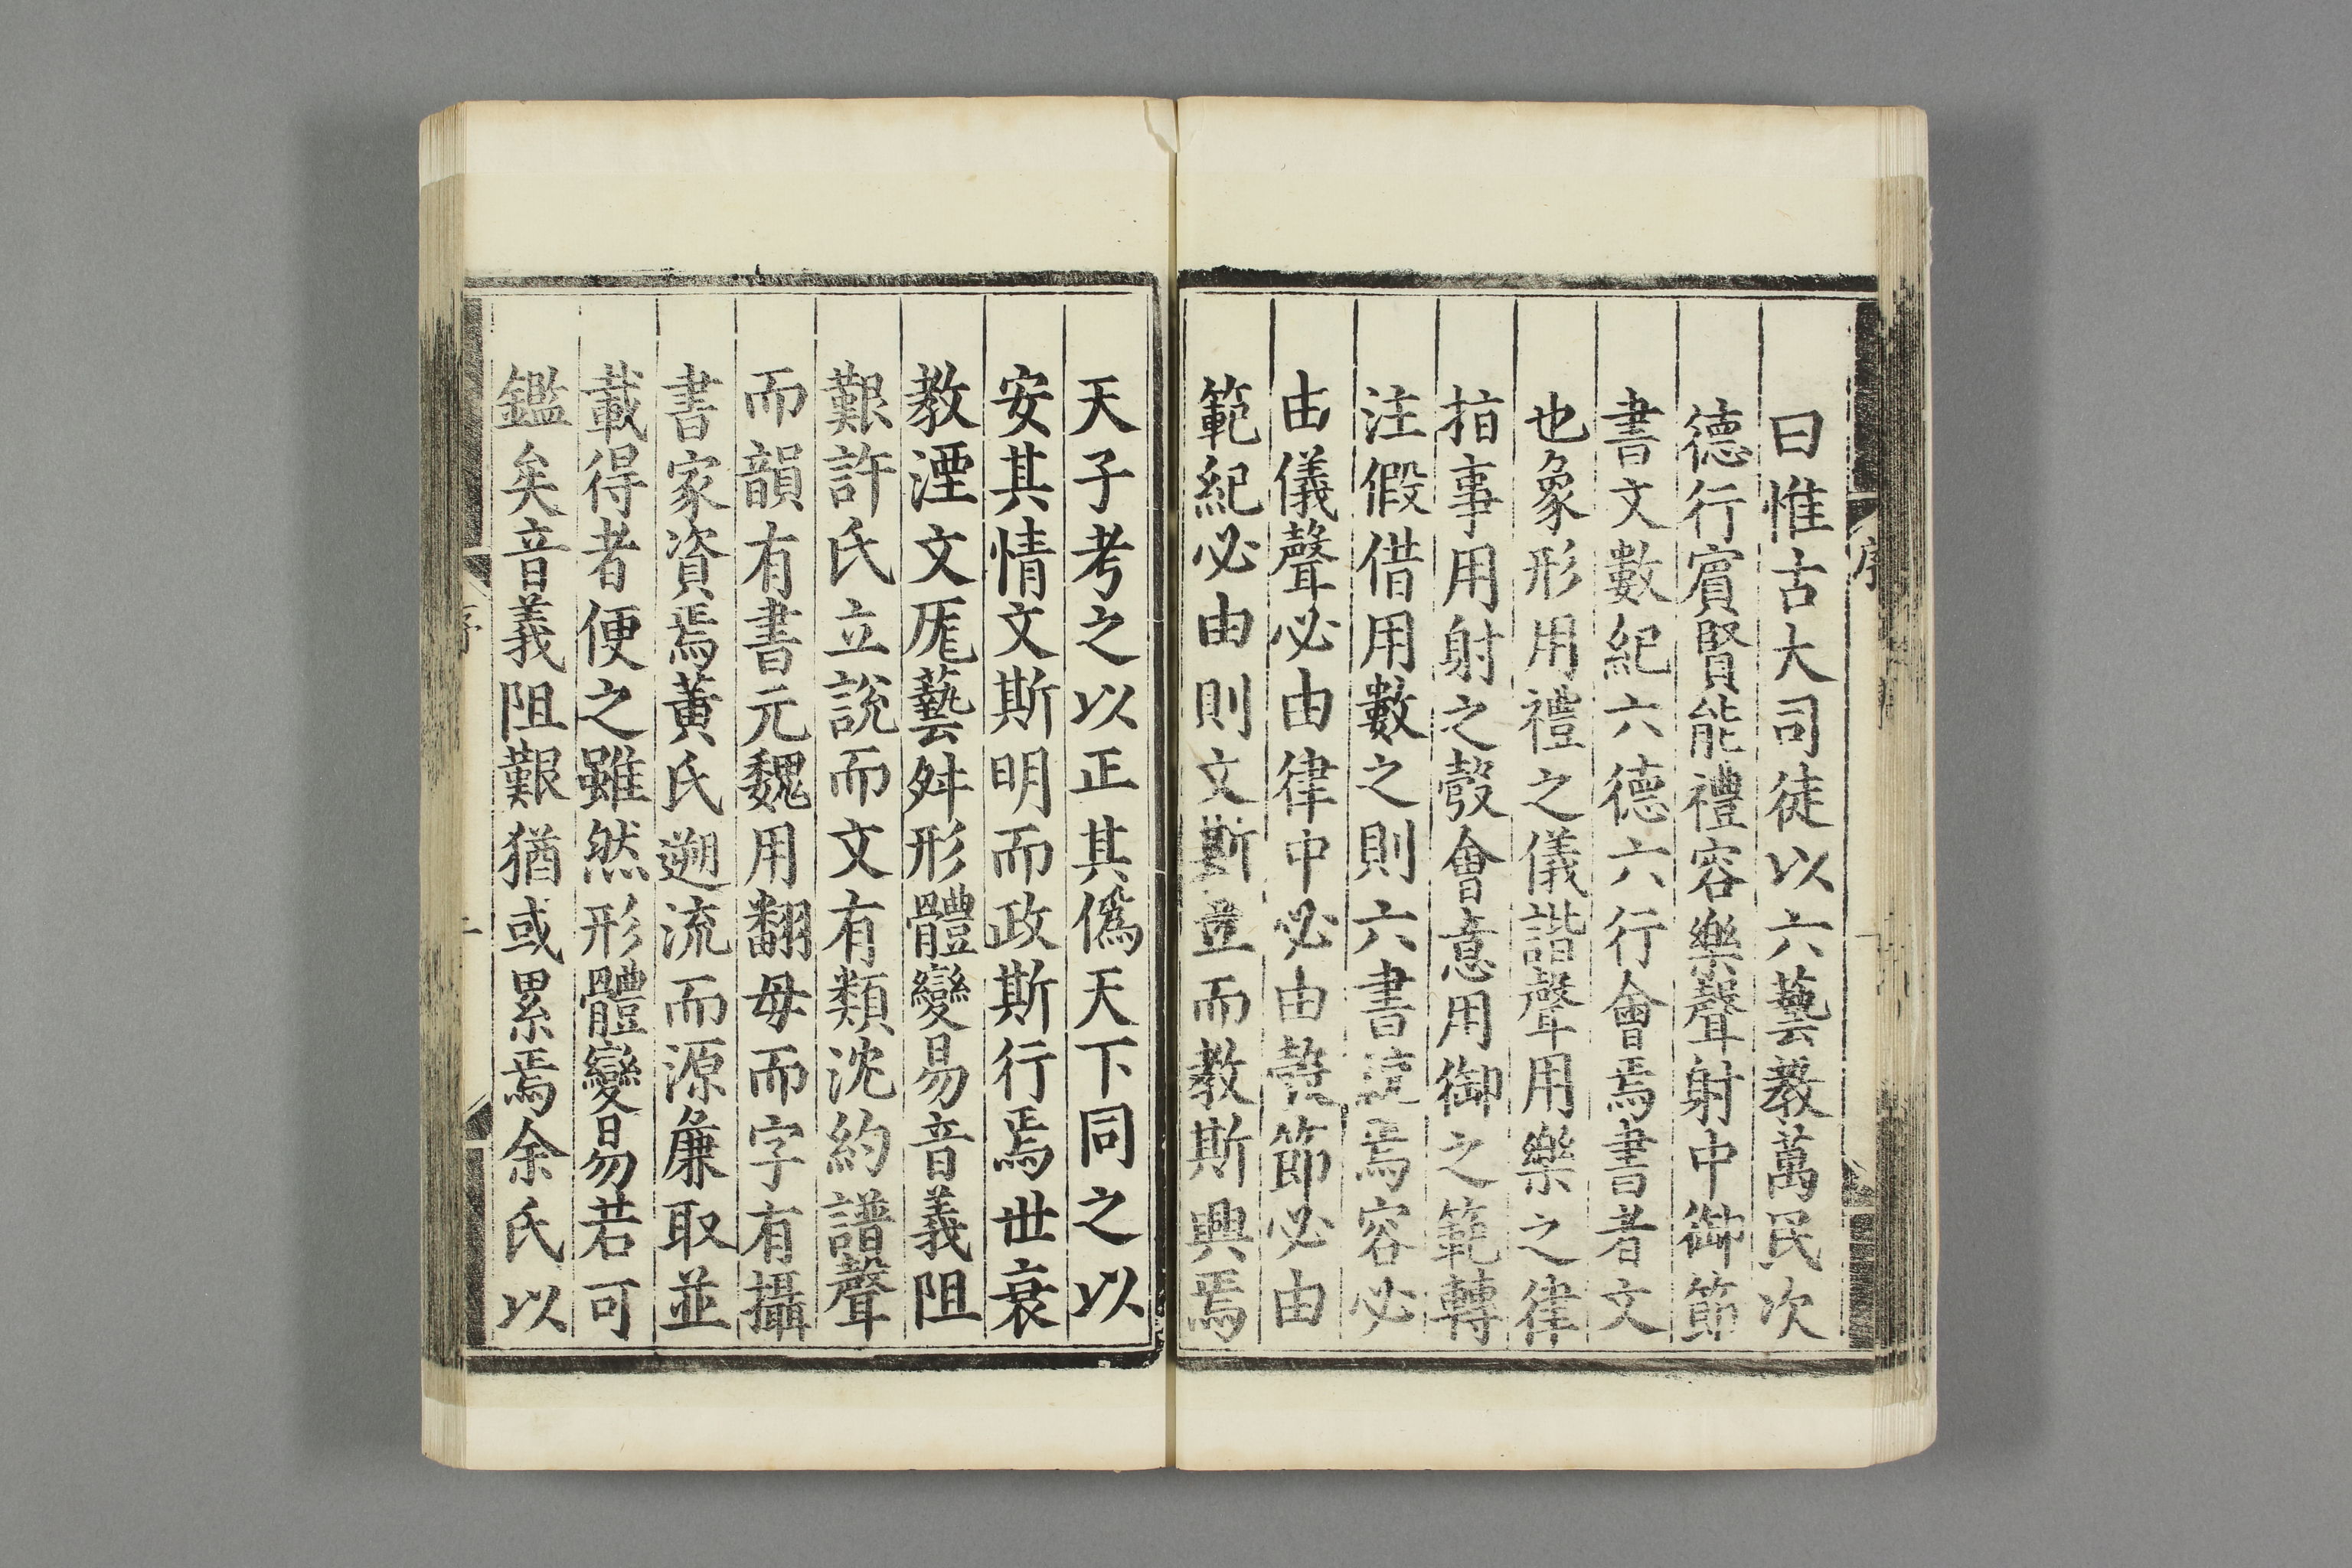 曰惟古大司徒以六藝教萬民次
德行賓賢能禮容樂聲射中御節
書文數紀六德六行會焉書者文
也象形用禮之儀諧聲用樂之律
指事用射之彀會意用御之範轉
注假借用數之則六書焉容必
由儀聲必由律中必由彀節必由
範紀必由則文斯並而教斯興焉
天子考之以正其僞天下同之以
安其情文斯明而政斯行焉世衰
教湮文厖藝舛形體變易音義阻
艱許氏立說而文有類沈約譜聲
而韻有書元魏用翻母而字有攝
書家資焉黃氏遡流而源兼取並
載得者便之雖然形體變易若可
鑑矣音義阻艱猶或累焉余氏以
序
序